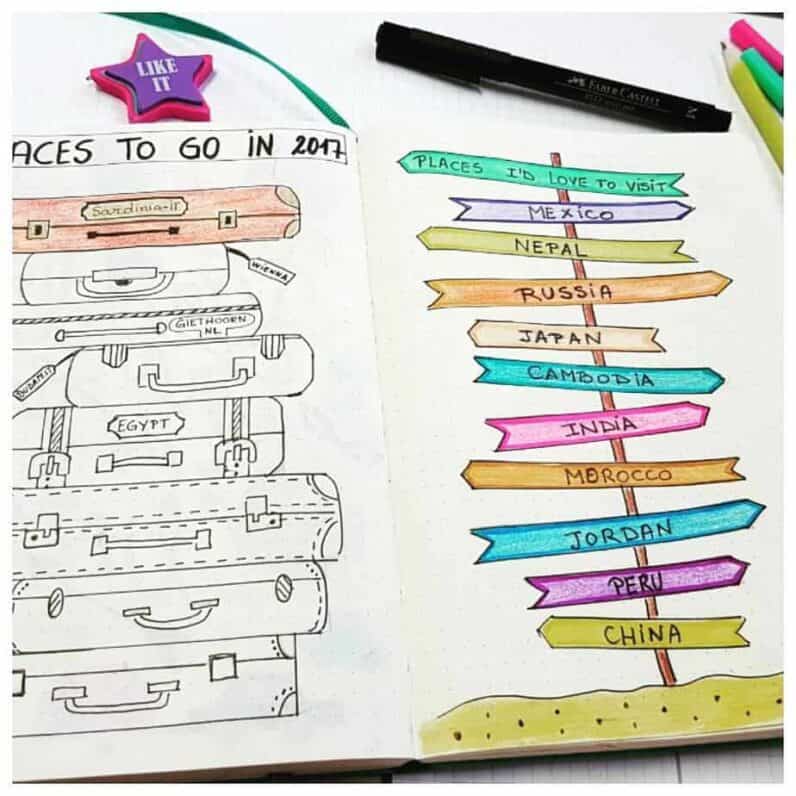 LIKE
IT
FABER-CASTELL
ACES TO GO IN 2017
Sardinia-IT
WIENNA
GIETHOORN
NL
BUDAPEST
EGYPT
PLACES I'D LOVE TO VISIT
MEXICO
NEPAL
RUSSIA
JAPAN
CAMBODIA
INDIA
MOROCCO
JORDAN
PERU
CHINA